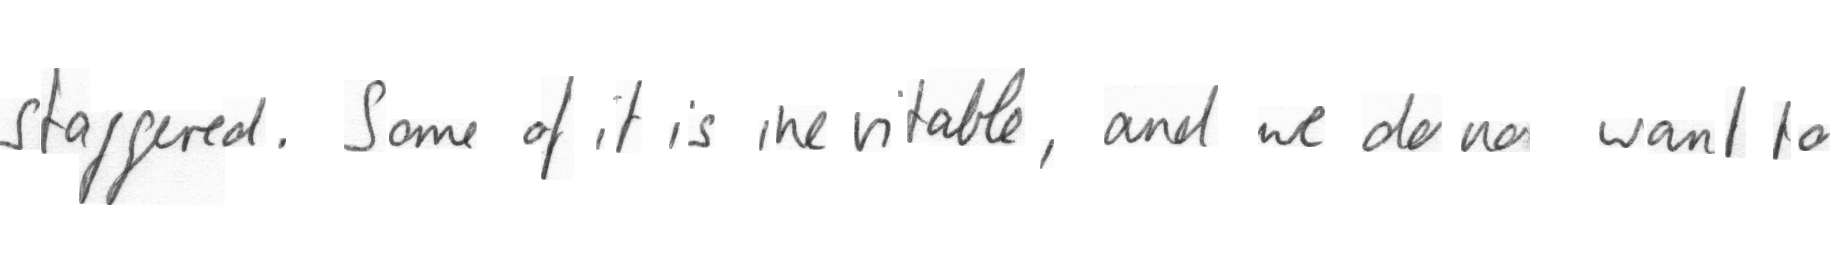 staggered. Some of it is inevitable, and we do no want to